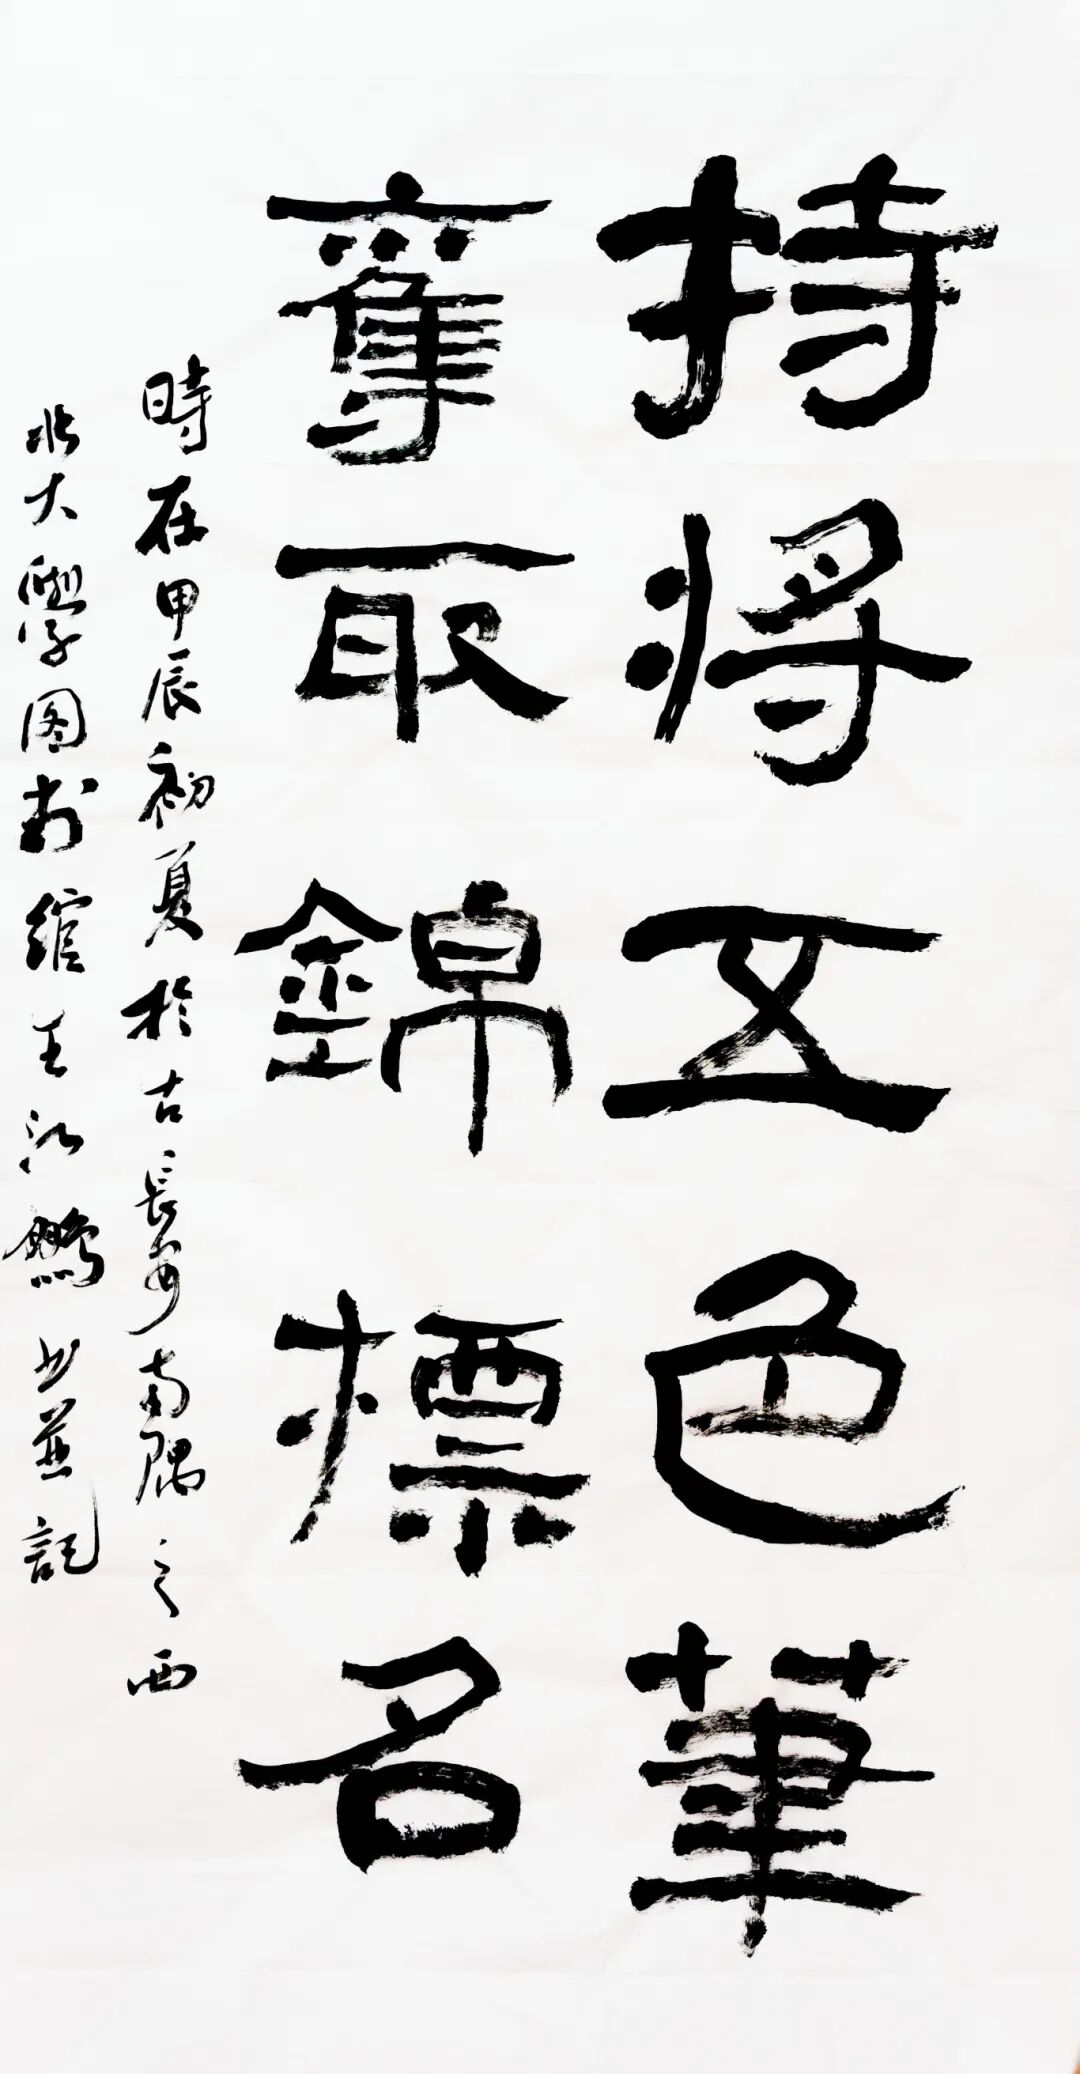 持将五色筆
奪取錦標名
時在甲辰初夏於古長安南隅之西
北大學图书館王江鵬书並記